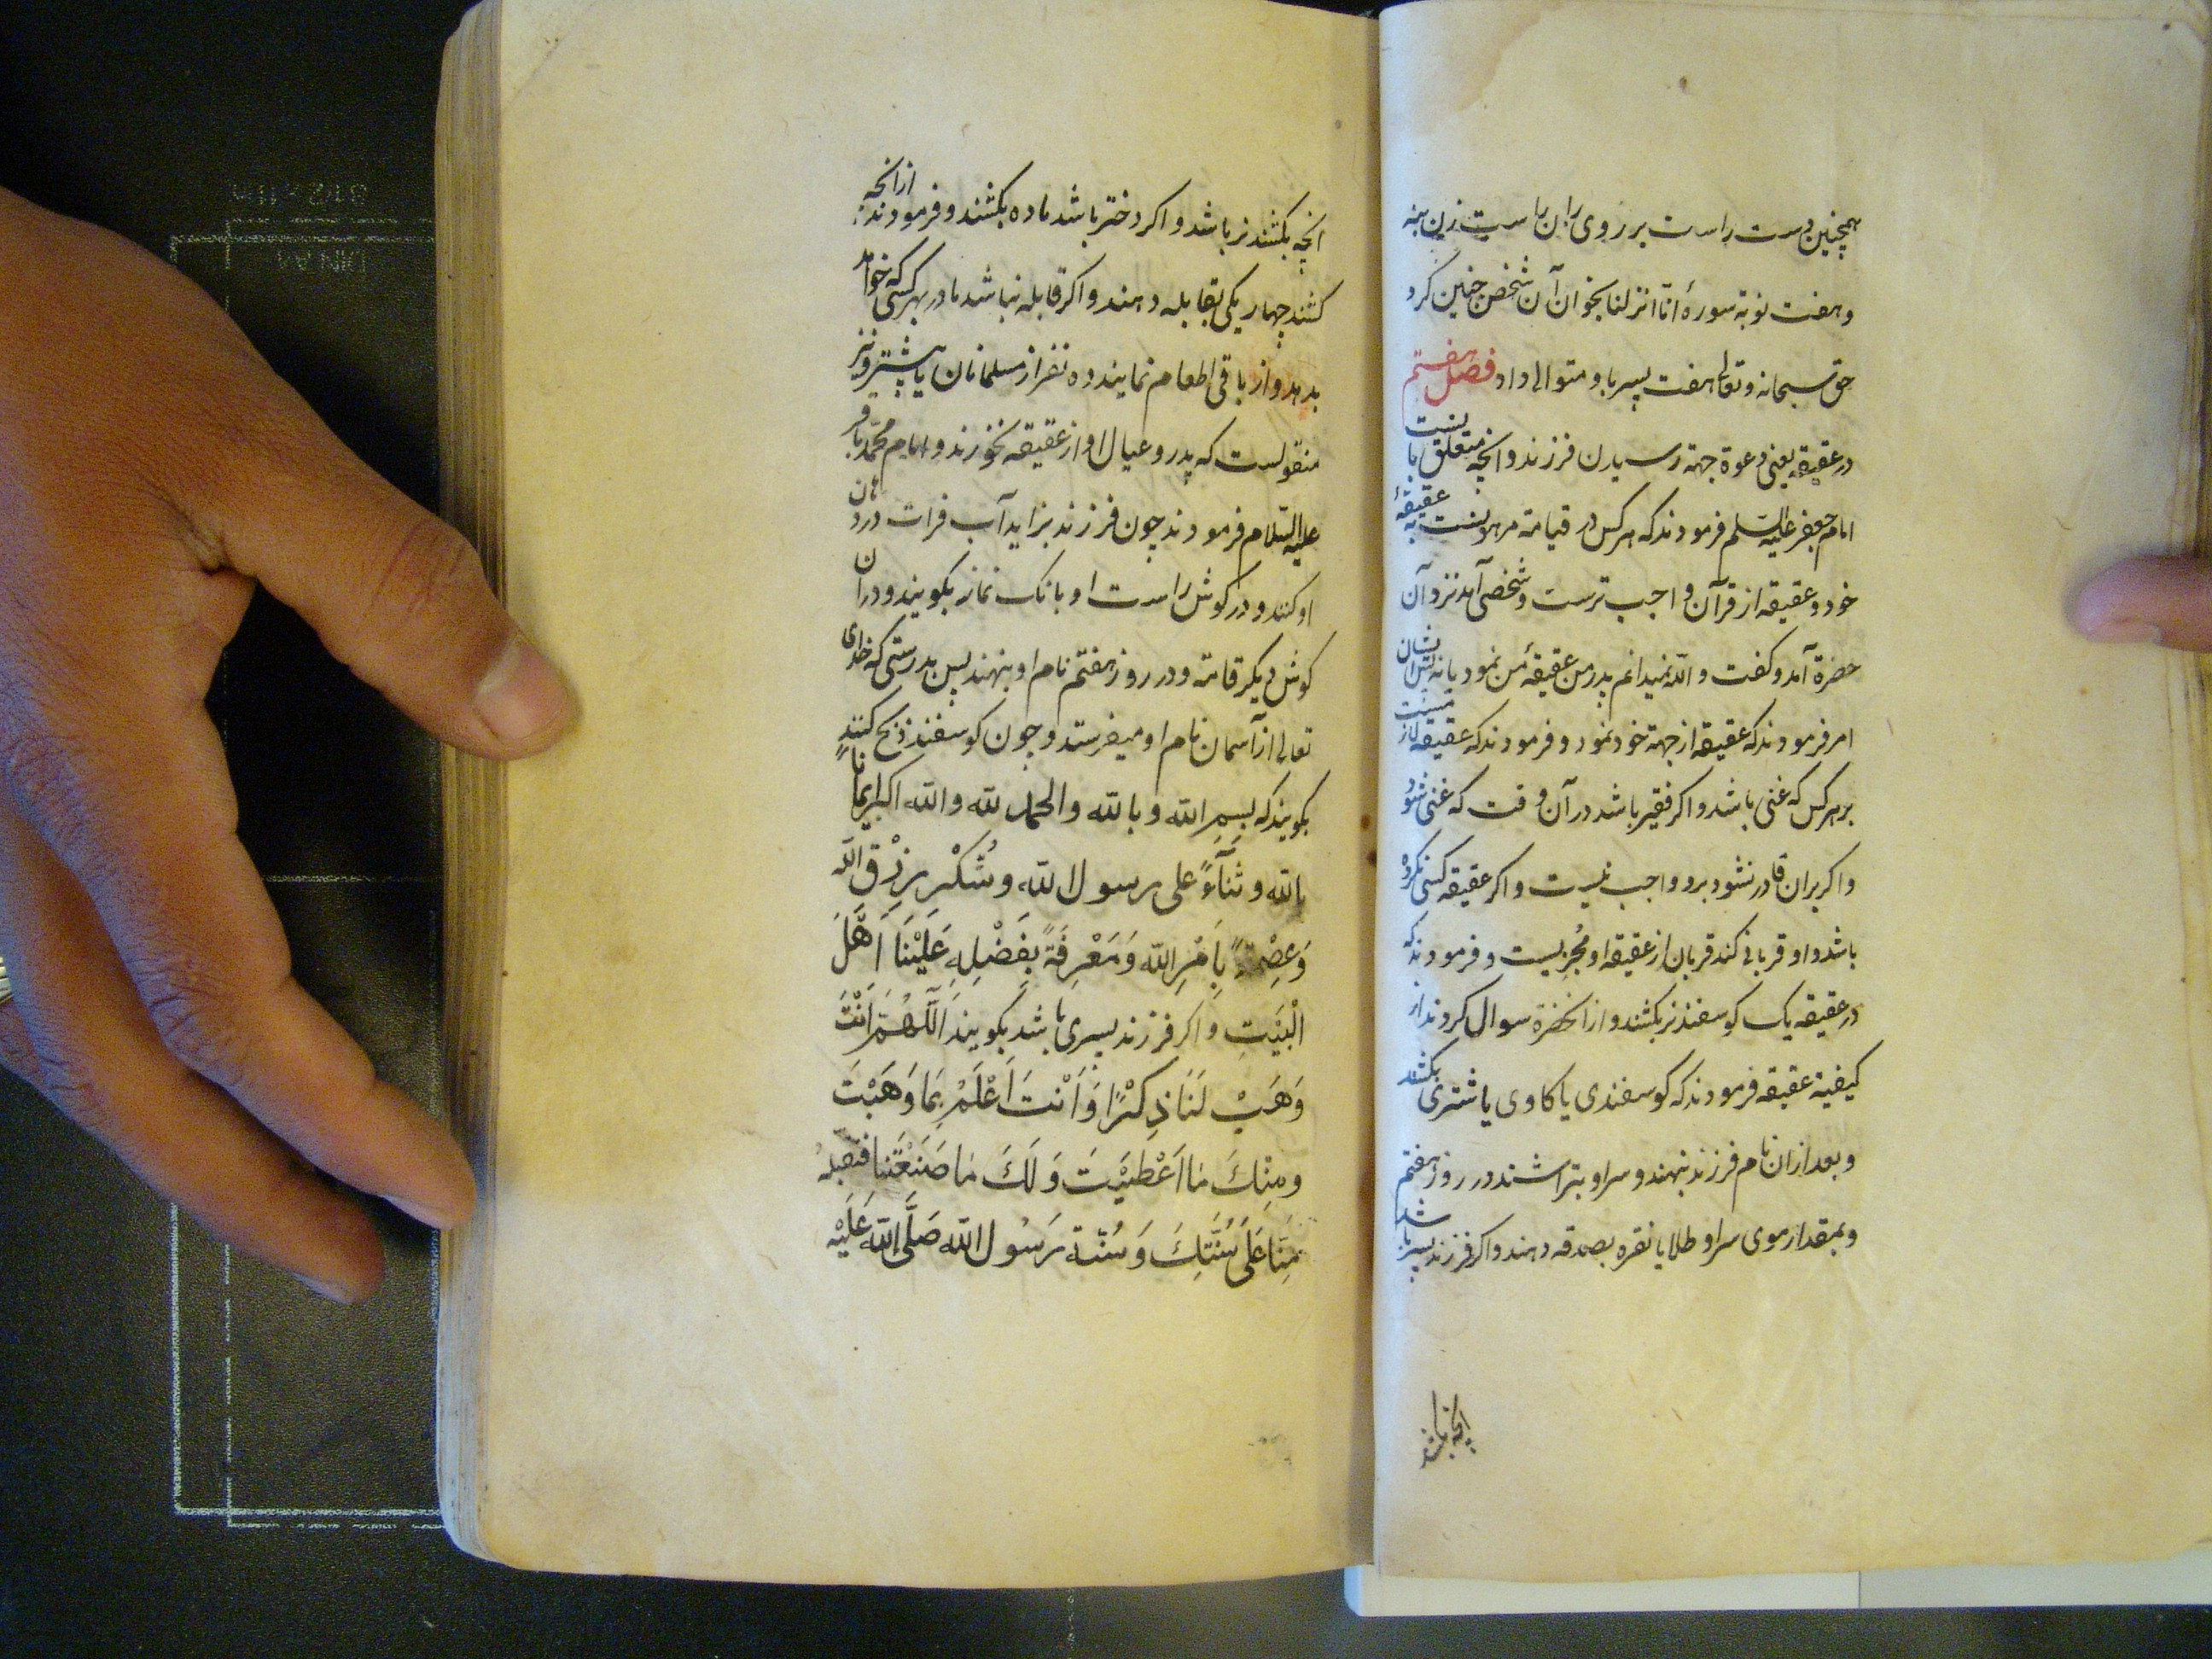 همچنین دست راست بر روی ران راست زن بنه
و هفت نوبة سورهٔ انا انزلنا بخوان آن شخص چنین کرد
حق سبحانه و تعالی هفت پسر باو متوالی داد فصل هفتم
در عقیقه یعنی دعوة جهة رسیدن فرزند و انچه متعلق بانست
امام جعفر علیه السلم فرمودند که هر کس در قیامة مرهونست به عقیقهٔ
خود و عقیقه از قرآن واجب ترست و شخصی آمد نزد آن
حضرة آمد و کفت والله نمیدانم پدر من عقیقهٔ من نمود یا نه ایشان
امر فرمودند که عقیقه از جهة خود نمود و فرمودند که عقیقه لازمست
بر هر کس که غنی باشد و اکر فقیر باشد در آن وقت که غنی شود
و اکر بران قادر نشود برو واجب نیست و اکر عقیقه کسی نکرده
باشد و او قربانی کند قربان از عقیقه او مُجزیست و فرمودند که
در عقیقه یک کوسفند نر بکشند و از انحضرة سوال کردند از
کیفیة عقیقه فرمودند که کوسفندی یا کاوی یا شتری بکشند
و بعد ازان نام فرزند بنهند و سر او بتراشند در روز هفتم
و بمقدار موی سر او طلا یا نقره بصدقه دهند و اکر فرزند پسر باشد
انچه بکشند
انچه بکشند نر باشد و اکر دختر باشد ماده بکشند و فرمودند از انچه
کشند چهار یکی بقابله دهند و اکر قابله نباشد مادر بهر کسی که خواهد
بدهد و از باقی اطعام نمایند ده نفر از مسلمانان یا بیشتر و نیز
منقولست که پدر و عیال او از عقیقه نخورند و امام محمد باقر
علیه السلام فرمودند چون فرزند بزاید آب فرات در دهان
او کنند و در کوش راست او بانک نماز بکویند و در ان
کوش دیکر قامة و در روز هفتم نام او بنهند پس بدرستی که خدای
تعالی از آسمان نام او میفرستد و چون کوسفند ذبح کنند
بکویند که بسم الله وبالله والحمد لله والله اکبر ایماناً
بالله وثَنَآءً على رسول الله وشُكْر رزْق الله
وَعِصْمَةً بِاَمْرِ الله وَمَعْرِفَةً بِفَضْلِهِ عَلَيْنَا اَهْلَ
الْبَيْتِ و اکر فرزند پسری باشد بکویند اَللّٰهُمَّ اَنْتَ
وَهَبْتَ لَنَا ذِكْرًا وَاَنْتَ اَعْلَمُ بِمَا وَهَبْتَ
ومِنْكَ مَا اَعْطَيْتَ وَلَكَ مَا صَنَعْنَا فتقبله
مِنَّا عَلَى سُنَّتِكَ وَسُنَّة رَسُول الله صَلَّى الله عَلَيْه